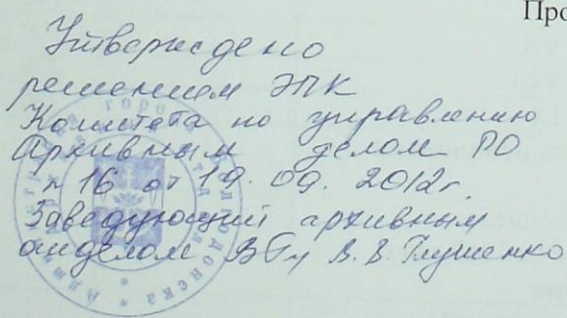 Про
Утверждено
решением ЭПК
Комитета по управлению
Архивным делом РО
п 16 от 19. 09. 2012г.
Заведующий архивным
отделом В. В. Глушенко